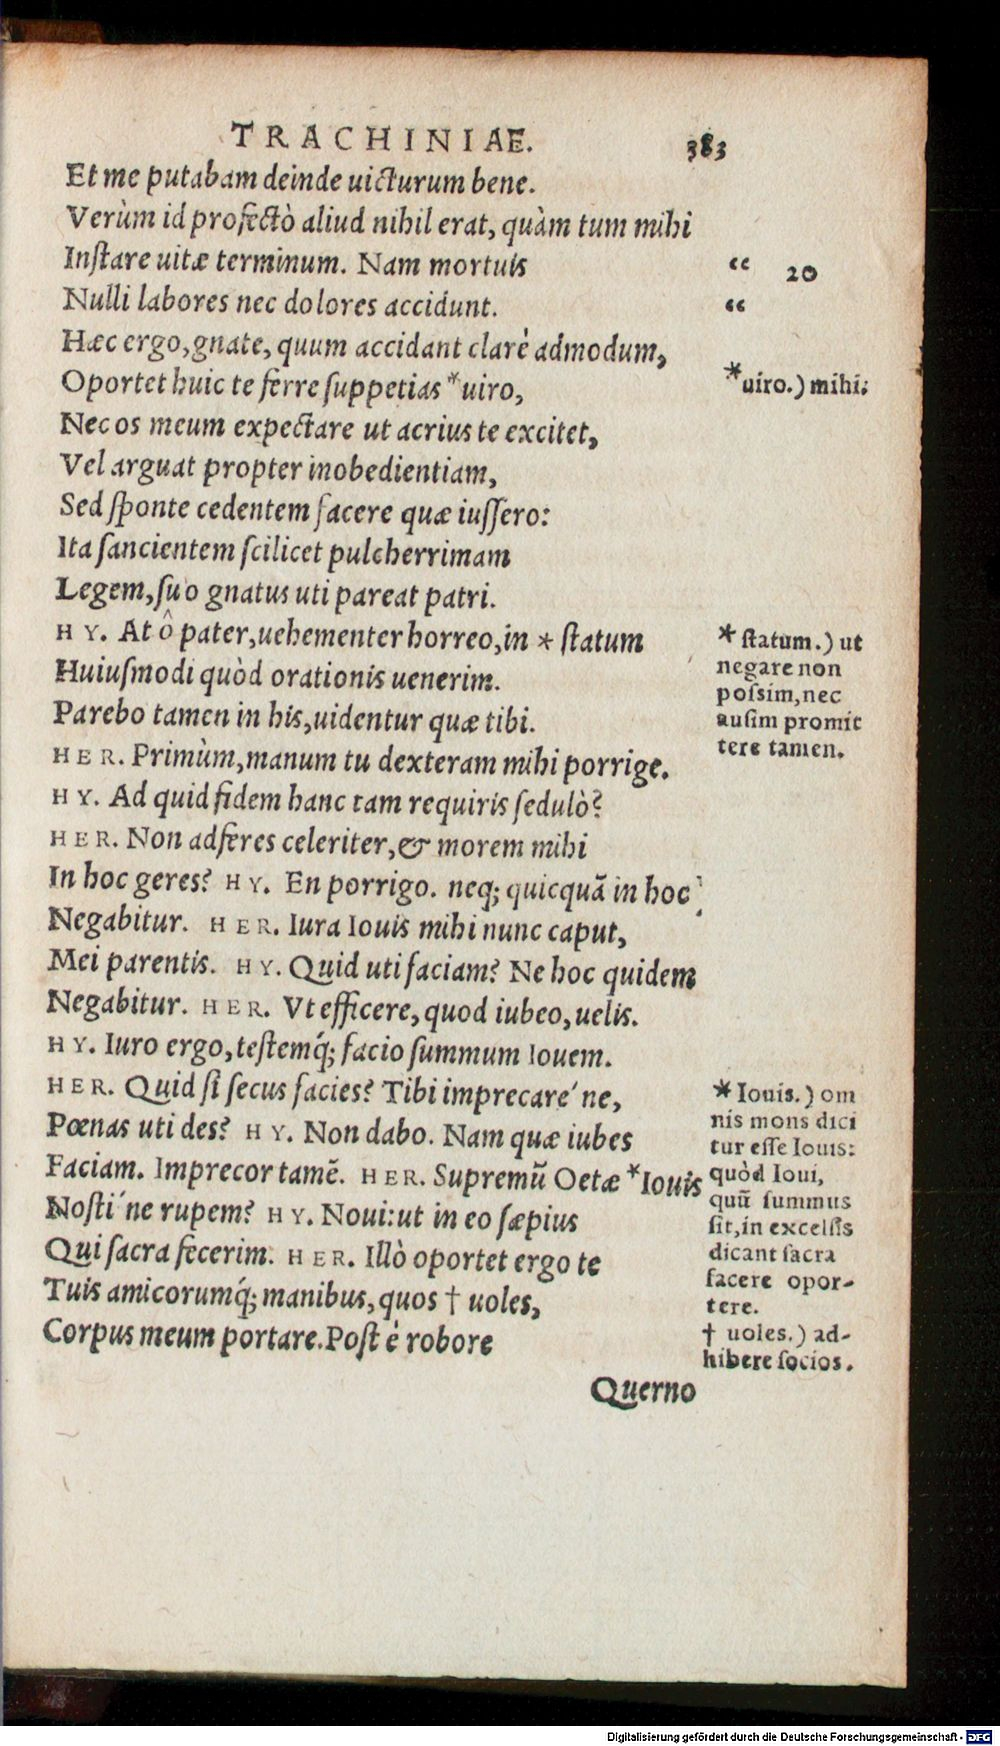 TRACHINIAE. 383
Et me putabam deinde uicturum bene.
Verùm id profectò aliud nihil erat, quàm tum mihi
Inſtare uitæ terminum. Nam mortuis “ 20
Nulli labores nec dolores accidunt. “
Hæc ergo, gnate, quum accidant clarè admodum,
Oportet huic te ferre ſuppetias *uiro,
Nec os meum expectare ut acrius te excitet,
Vel arguat propter inobedientiam,
Sed ſponte cedentem facere quæ iuſſero:
Ita ſancientem ſcilicet pulcherrimam
Legem, ſuo gnatus uti pareat patri.
HY. At ô pater, uehementer horreo, in * ſtatum
Huiuſmodi quòd orationis uenerim.
Parebo tamen in his, uidentur quæ tibi.
HER. Primùm, manum tu dexteram mihi porrige.
HY. Ad quid fidem hanc tam requiris ſedulò?
HER. Non adferes celeriter, & morem mihi
In hoc geres? HY. En porrigo. neq; quicquã in hoc
Negabitur. HER. Iura Iouis mihi nunc caput,
Mei parentis. HY. Quid uti faciam? Ne hoc quidem
Negabitur. HER. Vt efficere, quod iubeo, uelis.
HY. Iuro ergo, teſtemq́; facio ſummum Iouem.
HER. Quid ſi ſecus facies? Tibi imprecare´ ne,
Pœnas uti des? HY. Non dabo. Nam quæ iubes
Faciam. Imprecor tamẽ. HER. Supremũ Oetæ *Iouis
Noſti´ ne rupem? HY. Noui: ut in eo ſæpius
Qui ſacra fecerim. HER. Illò oportet ergo te
Tuis amicorumq́; manibus, quos † uoles,
Corpus meum portare. Poſt è robore
Querno
*uiro.) mihi.
* ſtatum.) ut
negare non
poſsim, nec
auſim promit
tere tamen.
* Iouis.) om
nis mons dici
tur eſſe Iouis:
quòd Ioui,
quũ ſummus
ſit, in excelſis
dicant ſacra
facere opor-
tere.
† uoles.) ad-
hibere ſocios.
Digitalisierung gefördert durch die Deutsche Forschungsgemeinschaft - DFG